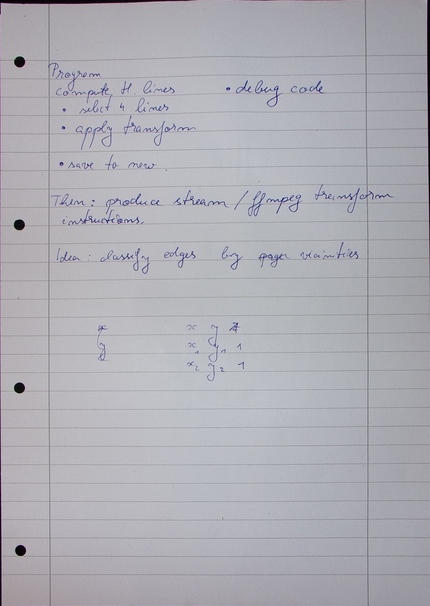 Program
compute H. lines
• debug code
• select 4 lines
• apply transform
• save to new.
Then: produce stream / ffmpeg transform
instructions.
Idea: classify edges by vicinities
x
y
x y
x₁ y₁ 1
x₂ y₂ 1